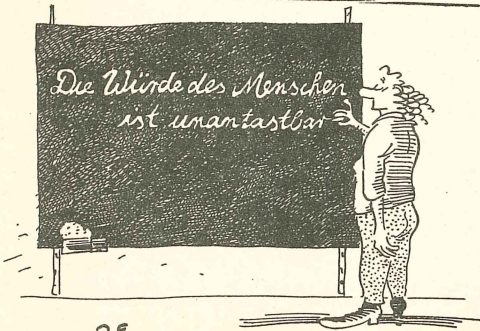 Die Würde des Menschen
ist unantastbar